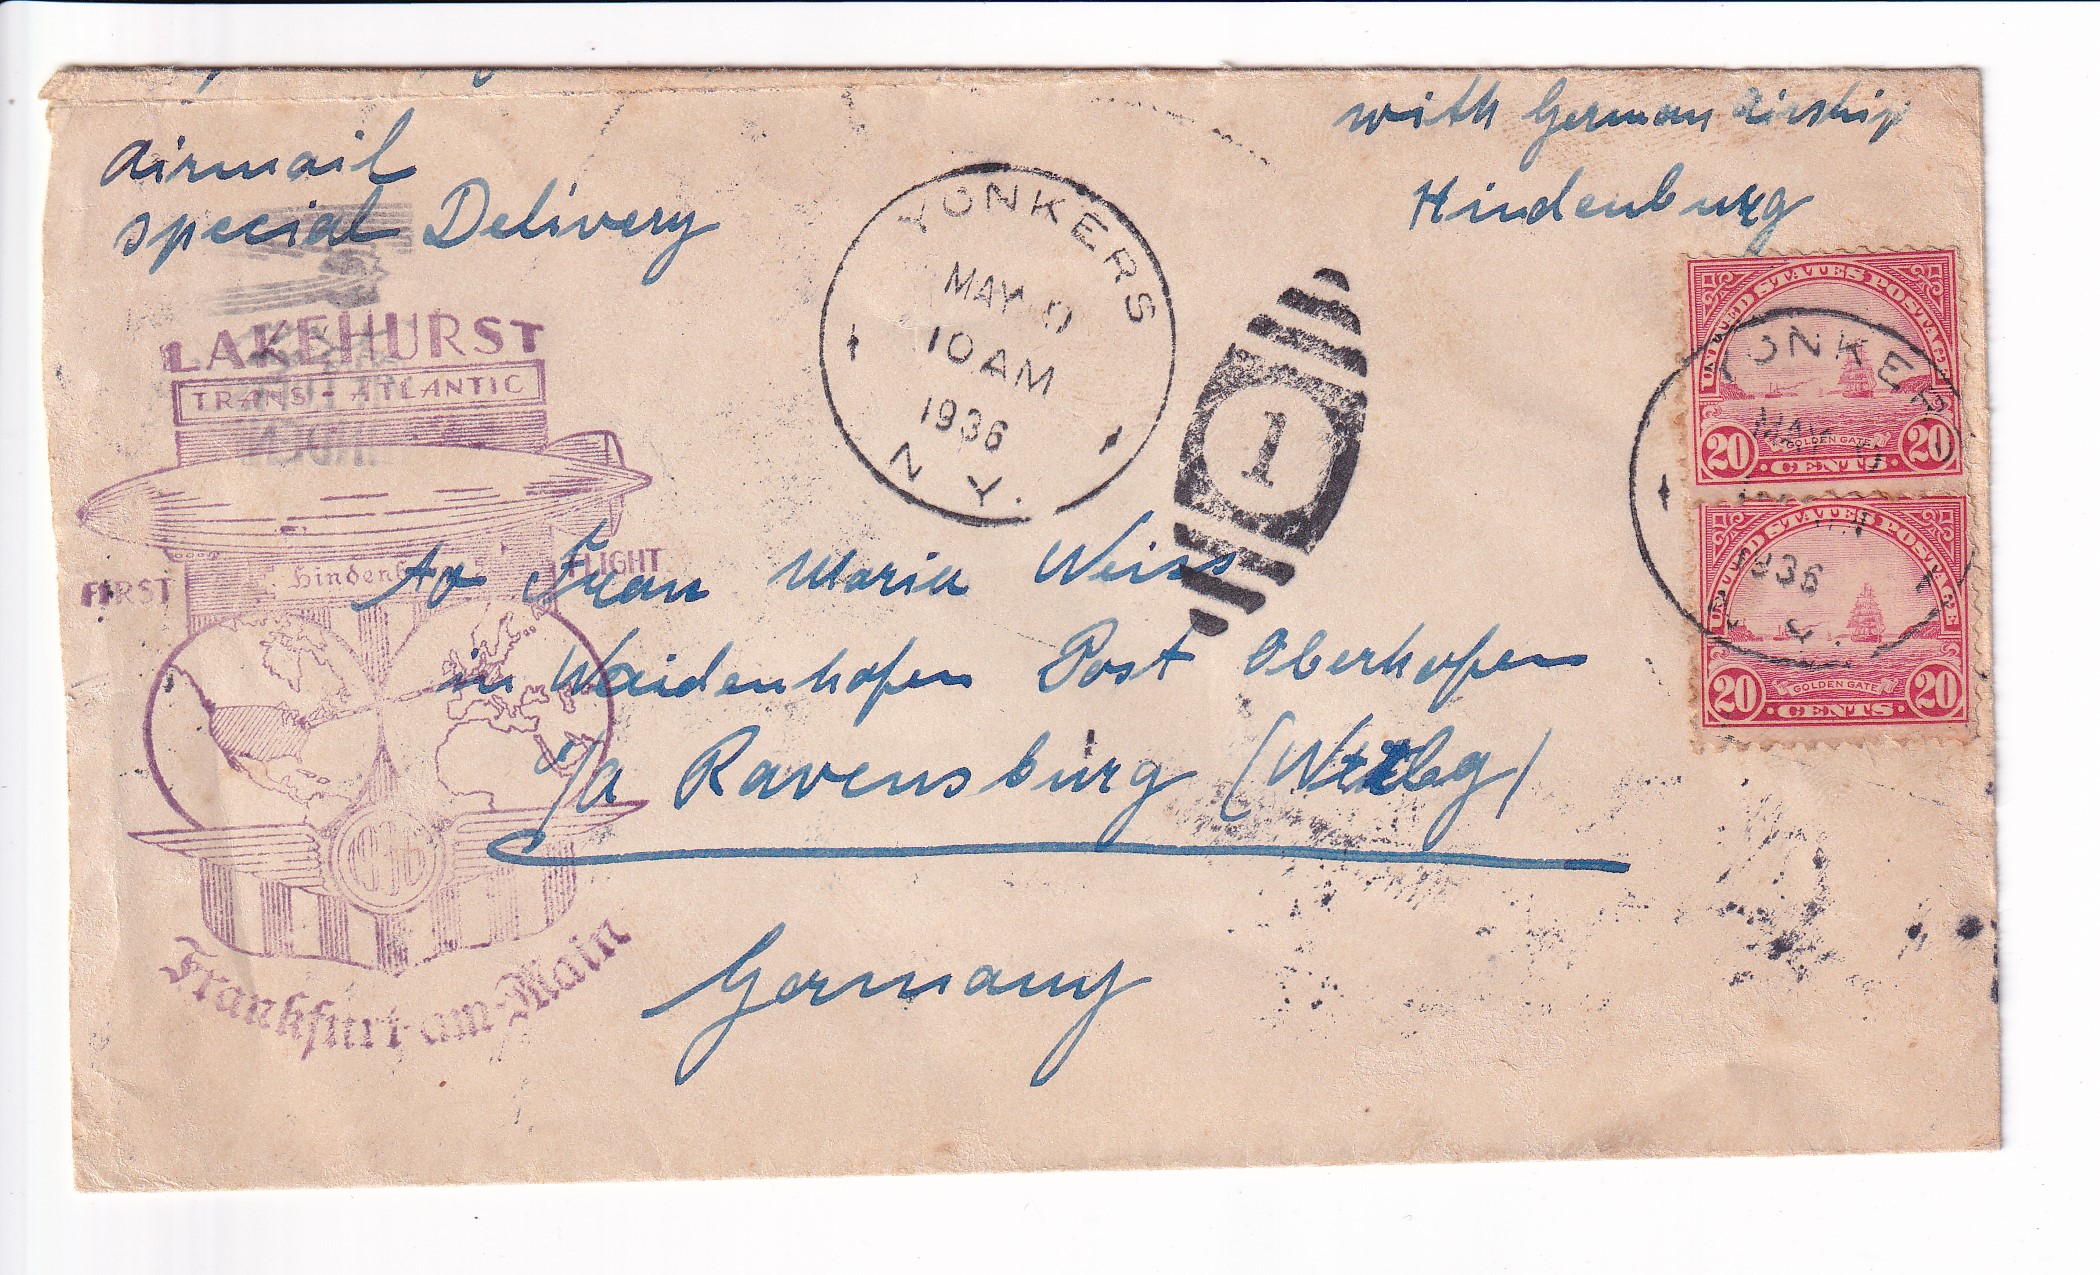 airmail
special Delivery
with German airship
Hindenburg
YONKERS
MAY
10 AM
1936
N. Y.
1
LAKEHURST
TRANS-ATLANTIC
FIRST
FLIGHT
1936
Frankfurt-am-Main
To Frau Maria Weiss
in Waidenhofen Post Oberhofen
a/a Ravensburg (Wttbg)
Germany
UNITED STATES POSTAGE
GOLDEN GATE
20 CENTS 20
YONKERS
MAY
1936
Y.
UNITED STATES POSTAGE
GOLDEN GATE
20 CENTS 20